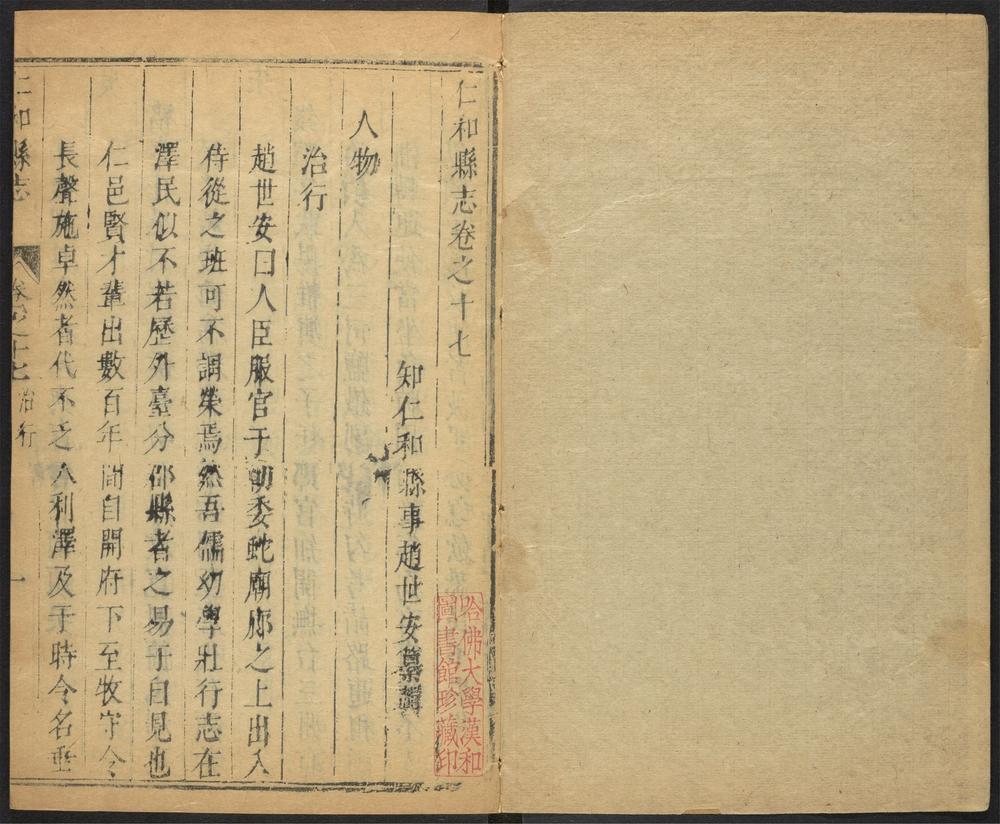 仁和縣志卷之十七
知仁和縣事趙世安彙譔
人物
治行
趙世安曰人臣服官于朝委虵廟廊之上出入
侍從之班可不謂榮焉然吾儒幼學壯行志在
澤民似不若歷外臺分郡縣者之易于自見也
仁邑賢才輩出數百年間自開府下至牧守令
長聲施卓然者代不乏人利澤及于時令名垂
仁和縣志
卷之十七 治行
一
哈佛大學漢和
圖書館珍藏印